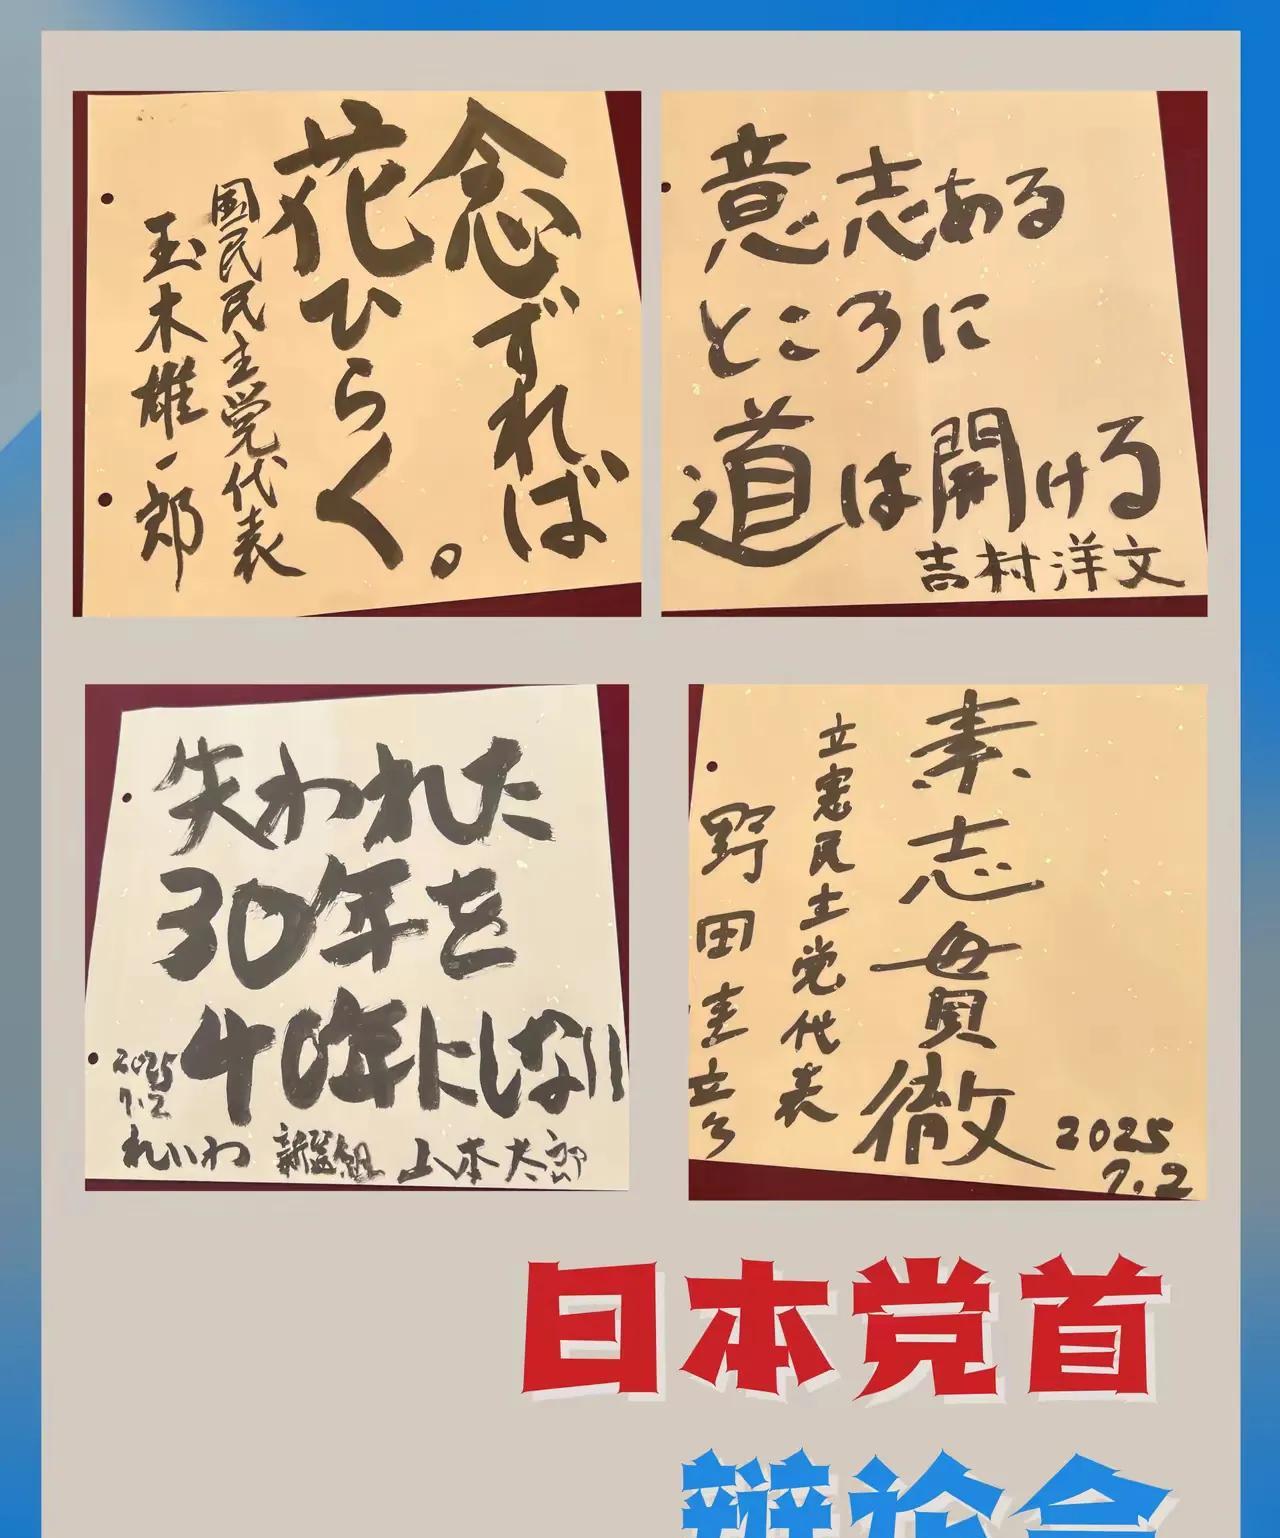 念ずれば
花ひらく。
国民民主党代表
玉木雄一郎
意志ある
ところに
道は開ける
吉村洋文
失われた
30年を
40年にしない
2025
7.2
れいわ 新選組 山本太郎
素志貫徹
2025
7.2
立憲民主党代表
野田
日本党首
辩论会